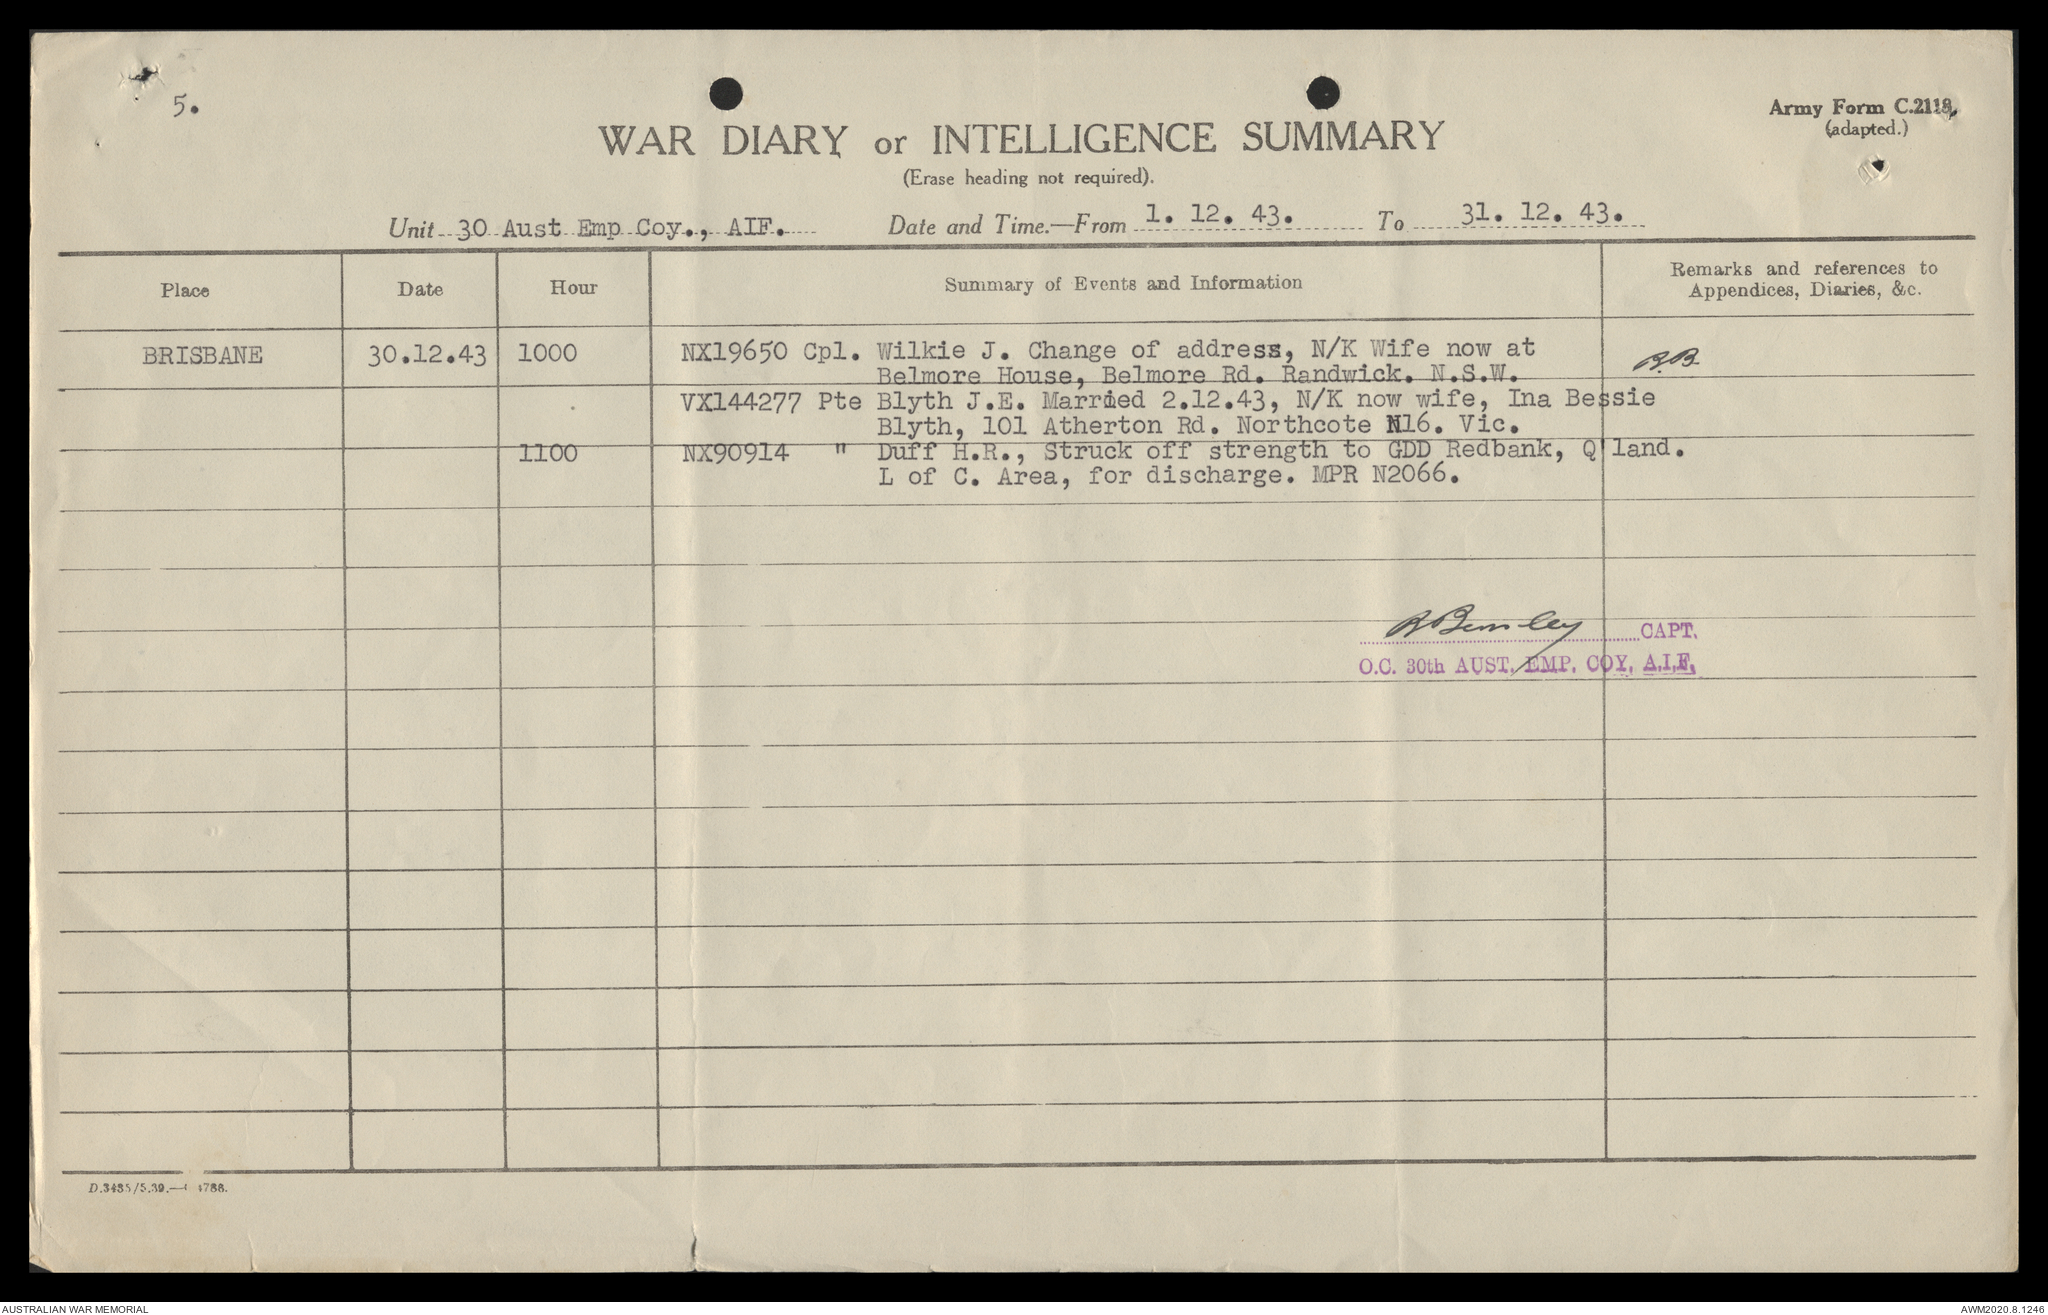 5.
Army Form C.2118.
(adapted.)
WAR DIARY or INTELLIGENCE SUMMARY
(Erase heading not required).
Unit 30 Aust Emp Coy., AIF. Date and Time.—From 1. 12. 43. To 31. 12. 43.
Place Date Hour Summary of Events and Information Remarks and references to
Appendices, Diaries, &c.
BRISBANE 30.12.43 1000 NX19650 Cpl. Wilkie J. Change of address, N/K Wife now at B.B.
Belmore House, Belmore Rd. Randwick. N.S.W.
VX144277 Pte Blyth J.E. Married 2.12.43, N/K now wife, Ina Bessie
Blyth, 101 Atherton Rd. Northcote N16. Vic.
1100 NX90914 " Duff H.R., Struck off strength to GDD Redbank, Q'land.
L of C. Area, for discharge. MPR N2066.
CAPT.
O.C. 30th AUST. EMP. COY, A.I.F.
D.3485/5.39.— 4788.
AUSTRALIAN WAR MEMORIAL AWM2020.8.1246